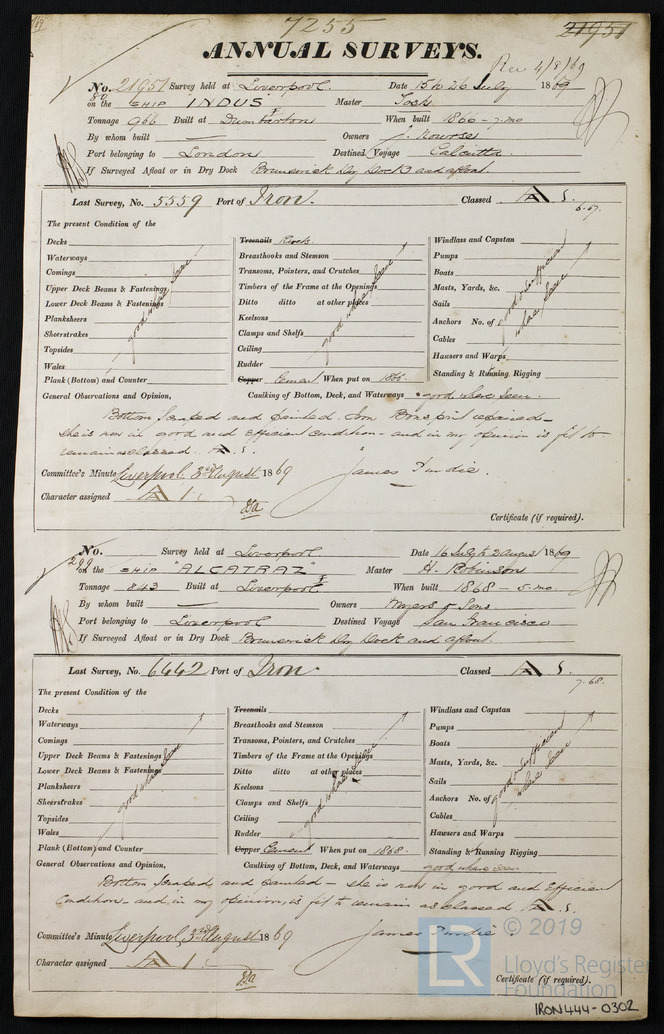 7255
21951
ANNUAL SURVEYS.
Rec 4/8/69
No. 21951 Survey held at Liverpool. Date 15 to 26 July 1869
80 on the SHIP INDUS Master
Tonnage 966 Built at Dumbarton When built 1866 - 7. mo
By whom built — Owners J. Nourse
Port belonging to London Destined Voyage Calcutta.
If Surveyed Afloat or in Dry Dock Brunswick Dry Dock and afloat.
Last Survey, No. 5559 Port of Iron. Classed A 1.
6.67.
The present Condition of the
Decks
Waterways
Comings
Upper Deck Beams & Fastenings
Lower Deck Beams & Fastenings
Planksheers
Sheerstrakes
Topsides
Wales
Plank (Bottom) and Counter
good where seen
Treenails
Breasthooks and Stemson
Transoms, Pointers, and Crutches
Timbers of the Frame at the Openings
Ditto ditto at other places
Keelsons
Clamps and Shelfs
Ceiling
Rudder
Copper Cement When put on 1866.
good where seen
Windlass and Capstan
Pumps
Boats
Masts, Yards, &c.
Sails
Anchors No. of
Cables
Hawsers and Warps
Standing & Running Rigging
good & sufficient
where seen
General Observations and Opinion, Caulking of Bottom, Deck, and Waterways good where seen.
Bottom scraped and painted. Iron Bowsprit repaired -
she is now in good and efficient condition - and in my opinion is fit to
remain as classed. A 1.
James Purdie.
Committee's Minute Liverpool. 3rd August 1869
Character assigned A 1
Certificate (if required).
No. Survey held at Liverpool Date 16 July to 2 August 1869
299 on the SHIP "ALCATRAZ" Master H. Robinson
Tonnage 843 Built at Liverpool When built 1868 - 5. mo.
By whom built — Owners Myers & Sons.
Port belonging to Liverpool Destined Voyage San Francisco
If Surveyed Afloat or in Dry Dock Brunswick Dry Dock and afloat.
Last Survey, No. 6442 Port of Iron. Classed A 1.
7.68.
The present Condition of the
Decks
Waterways
Comings
Upper Deck Beams & Fastenings
Lower Deck Beams & Fastenings
Planksheers
Sheerstrakes
Topsides
Wales
Plank (Bottom) and Counter
good where seen
Treenails
Breasthooks and Stemson
Transoms, Pointers, and Crutches
Timbers of the Frame at the Openings
Ditto ditto at other places
Keelsons
Clamps and Shelfs
Ceiling
Rudder
Copper Cement When put on 1868.
good where seen
Windlass and Capstan
Pumps
Boats
Masts, Yards, &c.
Sails
Anchors No. of
Cables
Hawsers and Warps
Standing & Running Rigging
good & sufficient
where seen
General Observations and Opinion, Caulking of Bottom, Deck, and Waterways good where seen
Bottom scraped and painted - she is now in good and efficient
condition - and in my opinion, is fit to remain as classed A 1.
James Purdie.
Committee's Minute Liverpool 3rd August 1869
Character assigned A 1
Certificate (if required).
LR
© 2019
Lloyd's Register
Foundation
IRON444-0302